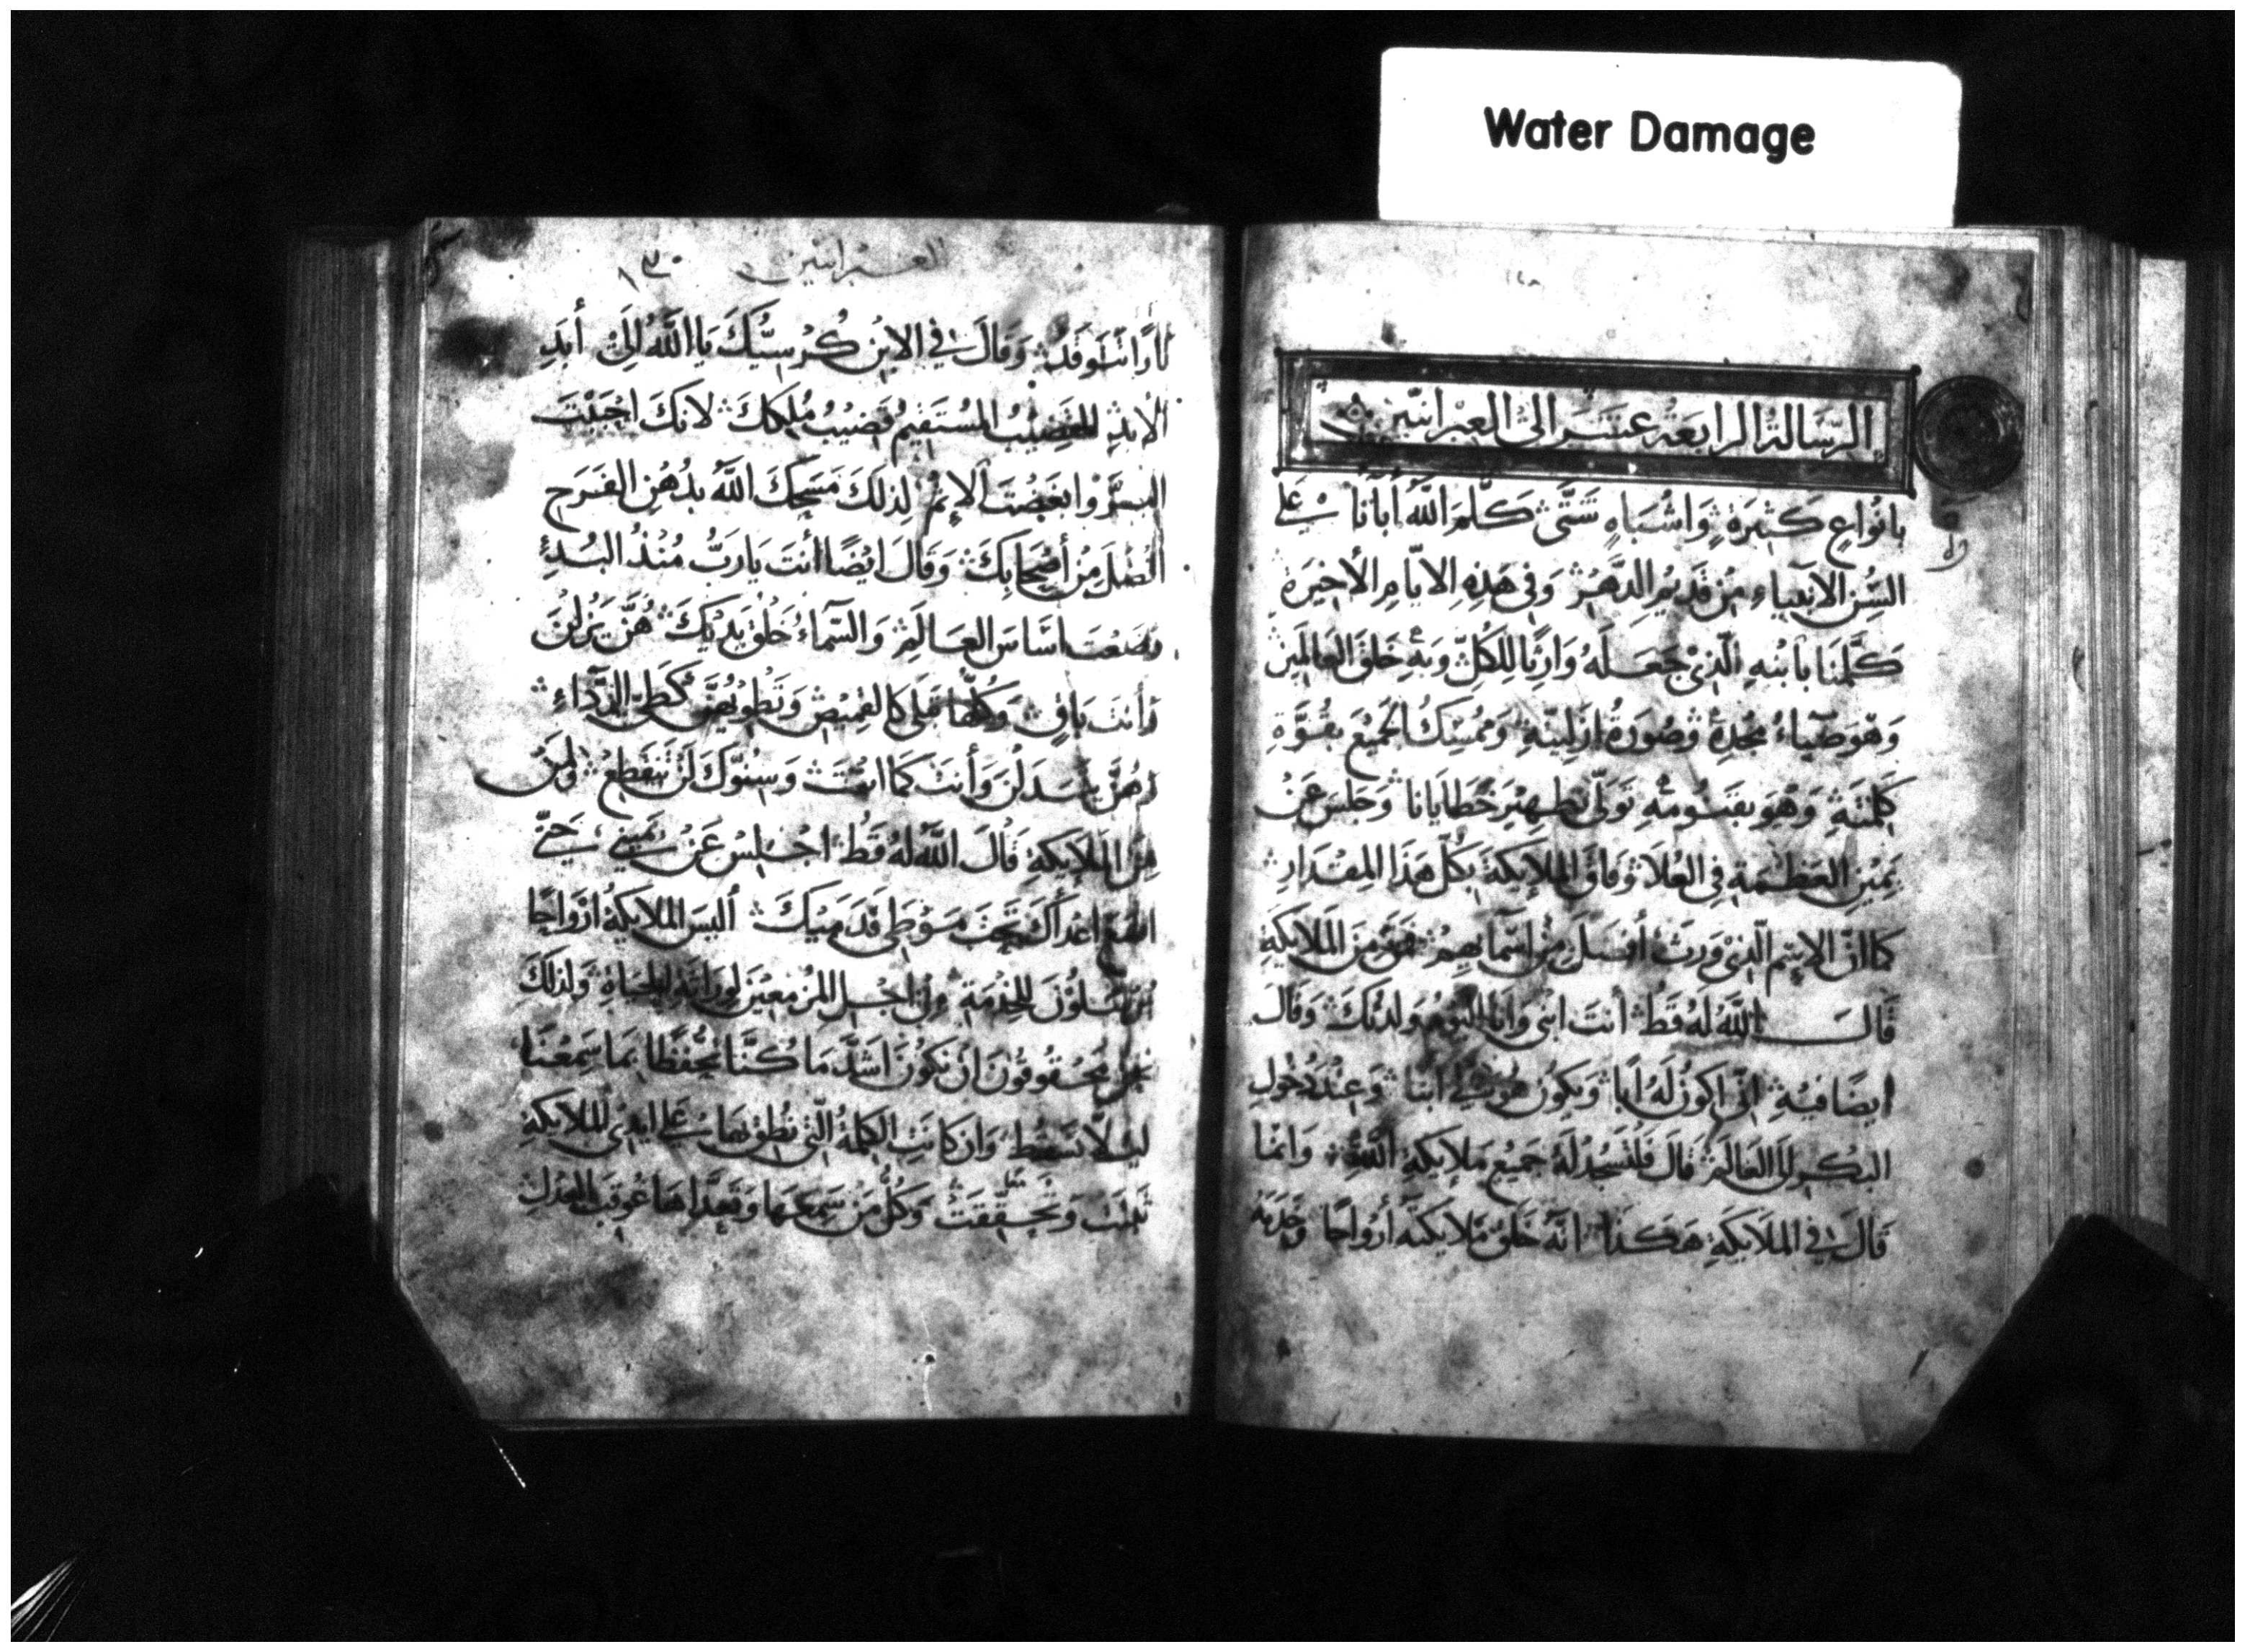 Water Damage
الرسالة الرابعة عشر الى العبرانيين
بِانْوَاعٍ كَثيرَةٍ وَاشْبَاهٍ شَتَّى كَلَّمَ اللهُ أَبَآنَا عَلى
السُنِ الانبياءِ مِنْ قَديمِ الدَّهْرِ وَفي هَذِهِ الايّامِ الأخِيرَةِ
كَلَّمَنَا بابْنِهِ الّذي جَعَلَهُ وَارِثًا لِلكُلِّ وَبهِ خَلَقَ العَالمينَ
وَهْوَ ضِيَاءُ مَجْدِهِ وَصُورَةُ ازَليّتِهِ وَمُمْسِكُ الجَميعَ بِقُوَّةِ
كَلِمَتِهِ وَهْوَ بقَنُومِهِ تَوَلّى تَطهِيرَ خَطَايَانا وَجَلسَ عَنْ
يَمينِ العَظَمَةِ في العُلَا وَفَاقَ المَلايكَةَ بِكُلِّ هَذَا المِقْدَارِ
كَما انَّ الاسْمَ الّذي وَرِثَ أَفضَلُ مِنْ اسْمَايِهِمْ فمَنْ مِنَ المَلايكَةِ
قَالَ اللهُ لهُ قَطْ أَنتَ ابْني وَانَا اليَوْمَ وَلَدْتُكَ وَقَالَ
ايضًا فيهِ انّي اكُونُ لَهُ ابًا وَيَكُونُ هُوَ لي ابْنا وَعِنْدَ دُخُولِ
البكْرِ الى العَالمِ قَالَ فَلتَسْجُدْ لَهُ جَميعُ مَلايكَةِ اللهِ وَانمَا
قَالَ في المَلايكَةِ هَكَذَا انّهُ خَلَقَ مَلايكتَهُ أَرْواحًا وَخَدَمَهُ
العبرانيين ١٣٠
نارًا تَتَوَقَدُ وَقَالَ في الابْنِ كُرْسيُّكَ يَا اللهُ الى أَبَدِ
الابَدِ القَضِيبُ المُسْتَقيمُ قَضيبُ مُلكِكَ لانكَ احْبَبْتَ
البِرَّ وَابغَضْتَ الإثمَ لِذلكَ مَسَحَكَ اللهُ بدُهْنِ الفَرَحِ
افْضَلَ مِنْ أَصْحَابِكَ وَقَالَ ايْضًا أَنتَ يَارَبُّ مُنْذُ البَدْءِ
وَضَعْتَ اسَاسَ العَالَمِ وَالسّمَاءُ خَلْقُ يَدَيْكَ هُنَّ يَزُلنَ
وَأَنتَ بَاقٍ وَكُلّهَا تَبلى كَالقَميصِ وَتَطْويهُنَّ كَطَيِّ الرِّدَاءِ
وَهُنَّ يَتَبَدَّلْنَ وَأَنتَ كَمَا انْتَ وَسِنُوّكَ لَنْ تَنْقَطِعَ وَلمَنْ
مِنَ المَلايكَةِ قَالَ اللهُ لهُ قَطْ اجْلِسْ عَنْ يَميني حَتّى
اضَعَ اعْدَاكَ تَحْتَ مَوْطِى قَدَمَيْكَ أَليسَ المَلايكةُ ارْوَاحًا
يُرْسَلُونَ للخِدْمَةِ مِنْ اجْلِ المُزْمِعِينَ لوِرَاثَةِ الحَيَاةِ وَلذلكَ
نَحْنُ مَحْقُوقُونَ انْ نَكُونَ اشَدَّ مَا كُنَّا تَحَفُّظًا بمَا سَمِعْنَا
ليلّا نَسْقُطَ وَان كانَتِ الكَلِمَةُ الّتي نُطِقَ بهَا عَلى ايْدي المَلايكَةِ
ثَبتَتْ وَتَحَقّقَتْ وَكُلُّ مَنْ سَمِعَهَا وَتعَدَّاهَا عُوقِبَ بالعَدْلِ